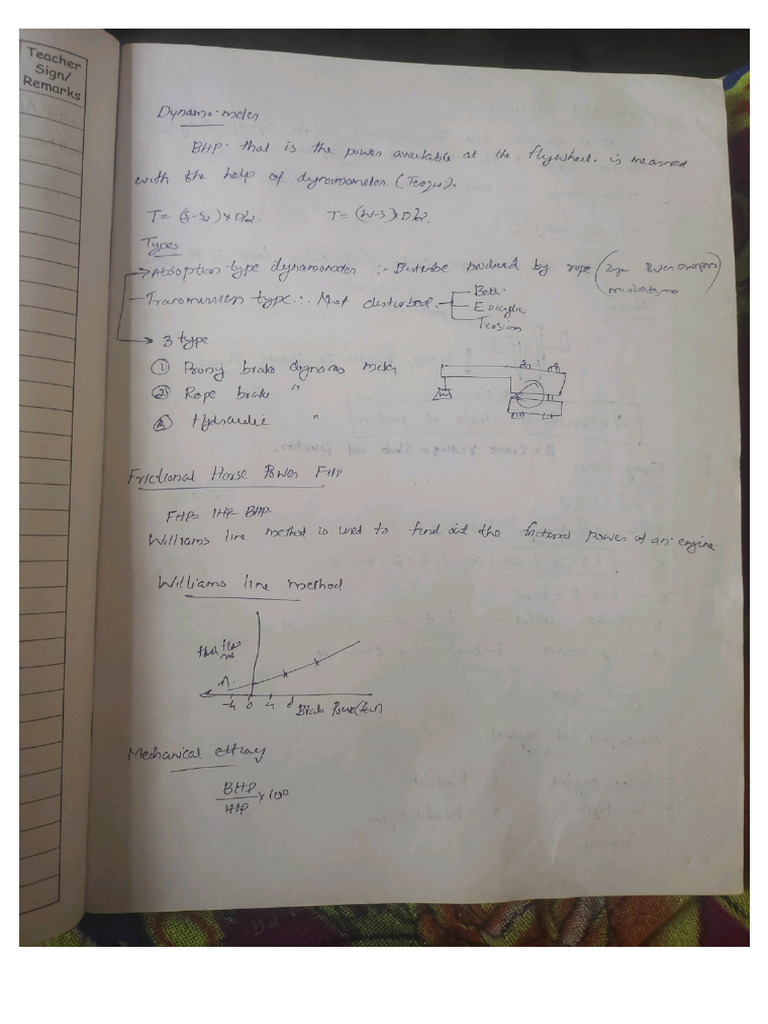 Teacher
Sign/
Remarks
Dynamo-meter
BHP. that is the power available at the flywheel. is measured
with the help of dynamometer. (Torque).
T = (S₁-S₂) x D/2. T = (W-S) x D/2.
Types
Absoption type dynamometer :- produced by rope
Transmission type :- Not disturbed. Belt.
Epicyclic
Torsion
3 type
① Prony brake dynamo meter
② Rope brake "
③ Hydraulic "
W
Frictional Horse Power FHP
FHP = IHP - BHP.
Williams line method is used to find out the frictional power of an engine.
Williams line method
fuel flow
-4 0 4 Brake Power (kw)
Mechanical
BHP
x 100